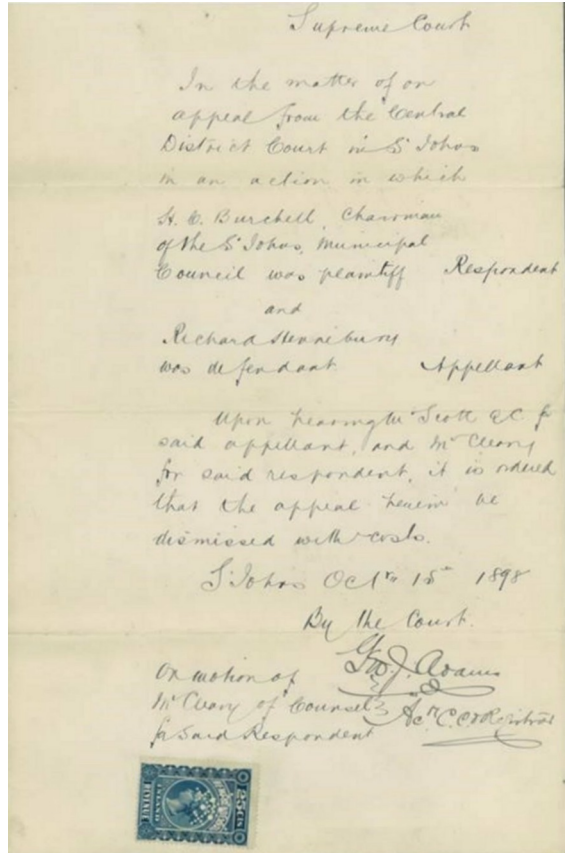 Supreme Court
In the matter of an
appeal from the Central
District Court in St Johns
in an action in which
H. C. Burchell, Chairman
of the St Johns, Municipal
Council was plaintiff Respondent
and
Richard Hennebury
was defendant Appellant
Upon hearing Mr Scott QC for
said appellant, and Mr Cleary
for said respondent, it is ordered
that the appeal herein be
dismissed with costs.
St Johns Octr 15th 1898
By the Court.
Geo. J. Adams
On motion of
Mr Cleary of Counsel Ac. C. C. & Registrar
for said Respondent
25 CTS